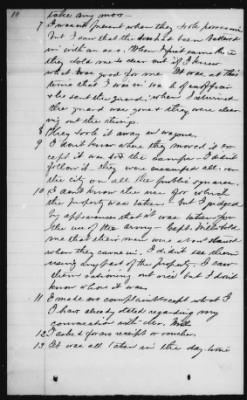 10 take any more
7 I was not present when they took possession
but I saw that the door had been battered
in with an axe. When I first came there
they told me to clear out if I knew
what was good for me. It was at this
time that I was in
he sent the guard; when I returned
the guard was gone & they were clear-
ing out the things.
8 They took it away in wagons.
9 I don't know where they moved it ex-
cept it was to the camps. I didn't
follow it. They were encamped all over
the city on all the public squares.
10 I don't know the use for which
the property was taken but I judged
by appearances that it was taken for
the use of the army. Capt. told
me that their men were about starved
when they came in. I didn't see them
using any part of the property. I saw
them rationing out rice but I don't
know whose it was.
11 I made no complaint except what I
have already stated regarding my
conversation with Gen.
12 I asked for no receipt or voucher.
13 It was all taken in the day time